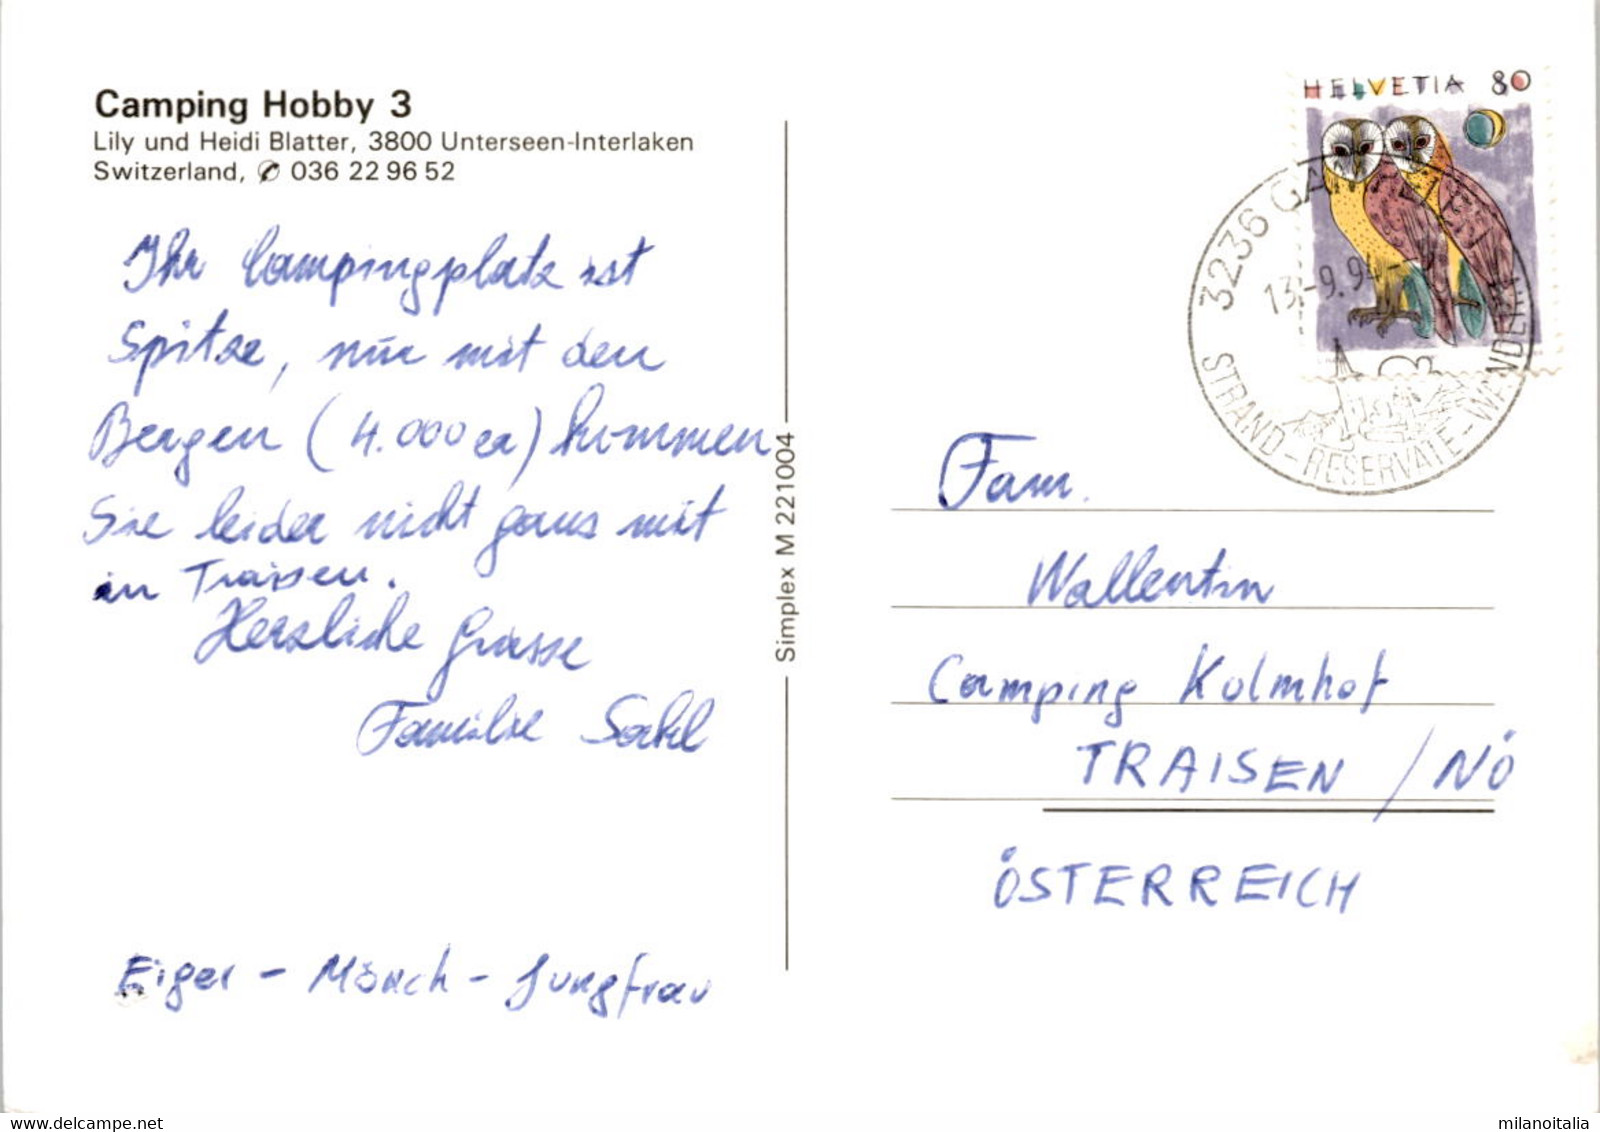 Camping Hobby 3
Lily und Heidi Blatter, 3800 Unterseen-Interlaken
Switzerland, ✆ 036 22 96 52
Ihr Campingplatz ist
Spitze, nur mit den
Bergen (4.000er) kommen
Sie leider nicht ganz mit
in Traisen.
Herzliche Grüsse
Familie
Eiger - Mönch - Jungfrau
Simplex M 221004
HELVETIA 80
3236
13.-9.94
STRAND-RESERVATE-WANDERN
Fam.
Wallentin
Camping Kolmhof
TRAISEN / NÖ
ÖSTERREICH
Ehuwien.com
milanoitalia